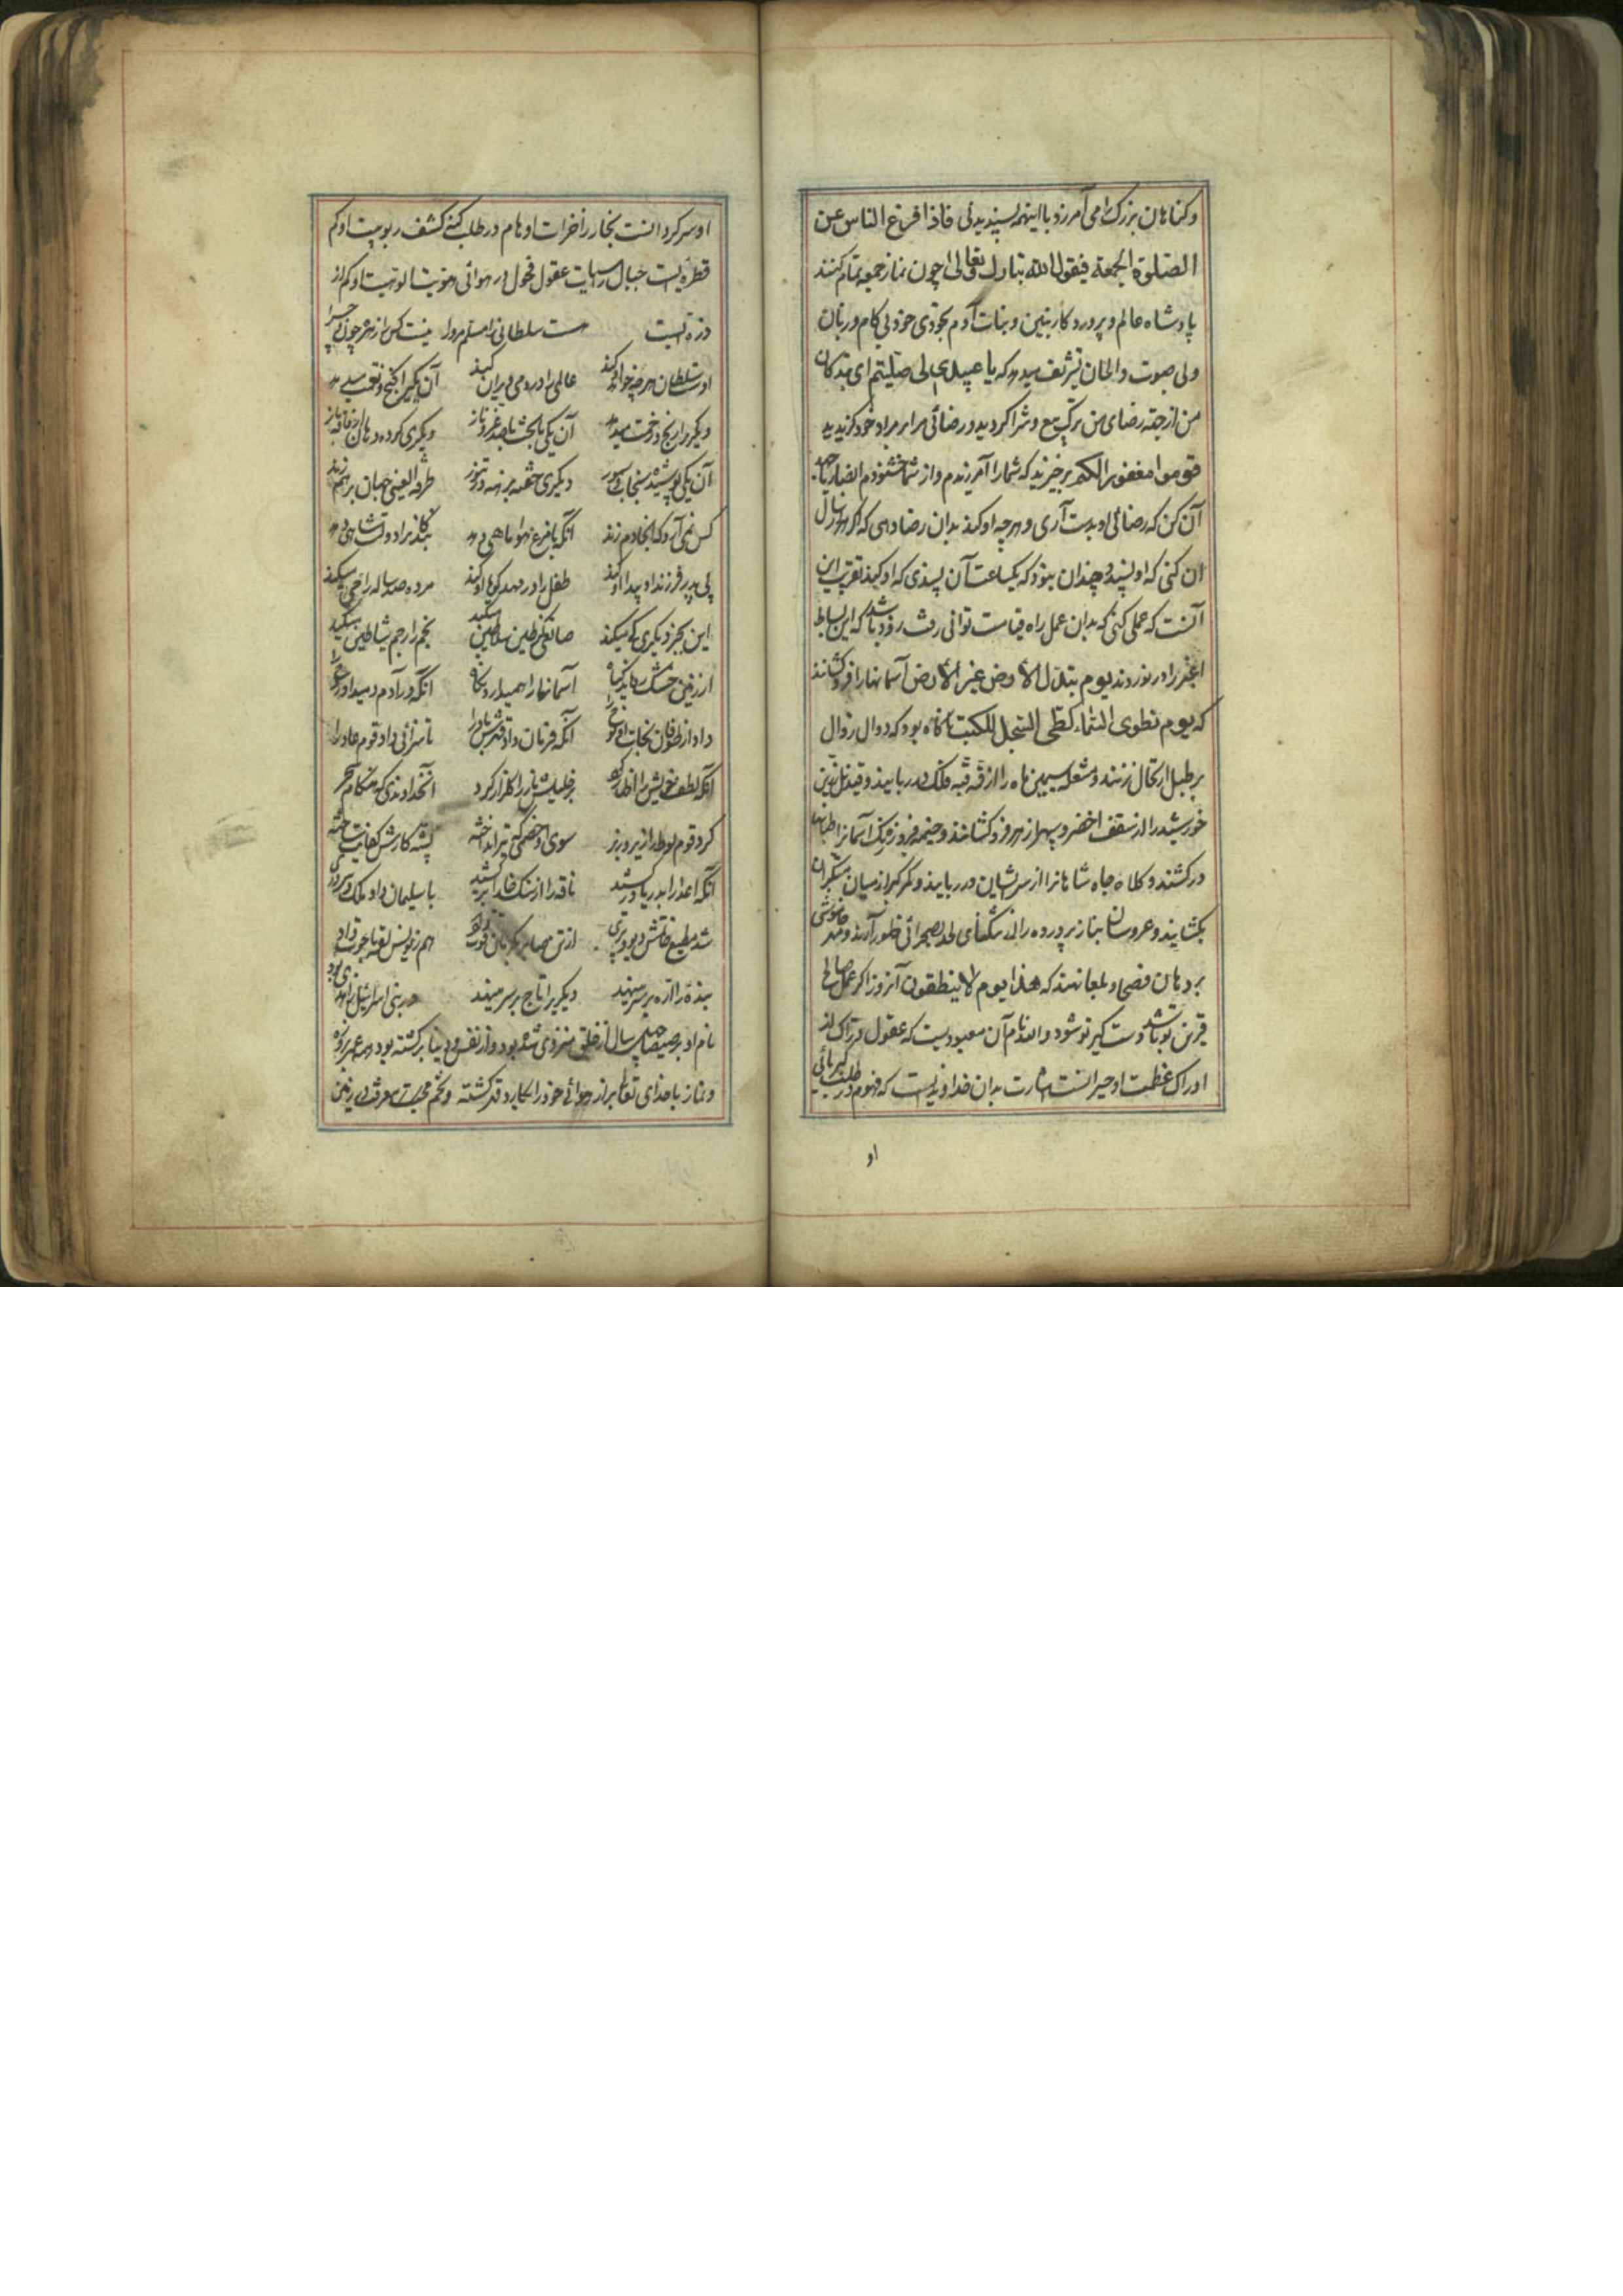 و کناهان بزرک را می آمرزد با اینهمه پسندیدئی فاذا فرغ الناس عن
الصلوة الجمعة فیقول الله تبارک و تعالی چون نماز جمعه تمام کنند
پادشاه عالم و پروردکار بنین و بنات آدم بخودی خود بی کام و زبان
و بی صوت و الحان تشریف میدهد که یا عبیدی الی صلیتم ای بندکان
من از جهة رضای من ترک بیع و شرا کردید و رضائی مرا بر مراد خود کزیدید
قوموا مغفورا لکم برخیزید که شما را آمرزیدم و از شما خشنودم
آن کن که رضائی او بدست آری و هرچه او کند بدان رضا دهی که اکر هزار سال
آن کنی که او پسندد چندان نبود که یکساعت آن پسندی که او کند تقریب این
آنست که عملی کنی که بدان عمل راه قیامت توانی رفت زود باشد که این بساط
اغبر را در نوردند یوم تبدل الأرض غیر الأرض آسمانها را فرو کشانند
که یوم نطوی السماء کطی السجل للکتب ناکاه بود که دوال زوال
بر طبل ارتحال زنند و مشعله سیمین ماه را از قبه فلک در ربایند و قندیل زرین
خورشید را از سقف اخضر و سپهر ازهر فرو کشانند و خیمه فیروزه رنک آسمانرا طناب
درکشند و کلاه جاه شاهانرا از سر ایشان در ربایند و کمر کبر از میان متکبران
بکشایند و عروسان بناز پرورده را از تنکنای لحد بصحرائی ظهور آرند و مهر خاموشی
بر دهان فصحا و بلغا نهند که هذا یوم لا ینطقون آنروز اکر عمل صالح
قرین تو باشد دست کیر تو شود و الله نام آن معبودیست که عقول از
ادراک عظمت او حیرانست اشارت بدان خداوندیست که فهوم در طلب کبریائی
او
او سرکردانست بحار زاخرات اوهام در طلب کنه کشف ربوبیت او کم
قطره ایست جبال راسیات عقول فحول در هوائی هویت الوهیت او کم از
ذره ایست هست سلطانی مسلم مرورا نیست کس را زهره چون و چرا
اوست سلطان هرچه خواهد او کند عالمی را در دمی ویران کند آن یکیرا کنج و نعمت میدهد
دیکریرا رنج و زحمت میدهد آن یکی بر تخت با صد عز و ناز دیکری کرده دهان از فاقه باز
آن یکی پوشیده سنجاب و سمور دیکری خفته برهنه در تنور طرفة العینی جهان برهم زند
کس نمی آرد که آنجا دم زند آنکه با مرغ هوا ماهی دهد بندکانرا دولت شاهی دهد
بی پدر فرزند او پیدا کند طفل را در مهد کویا او کند مرده صد ساله را حی میکند
این بجز دیکری کی میکند صانعی کز طین سلاطین میکند نجم را رجم شیاطین میکند
از زمین خشک رویاند کیاه آسمانها را همیدارد نکاه آنکه در آدم دمید او روح را
داد از طوفان نجات او نوح را آنکه فرمان داد قهرش باد را تا سزائی داد قوم عاد را
آنکه لطف خویش را اظهار کرد بر خلیلش نار را کلزار کرد آن خداوندی که هنکام سحر
کرد قوم لوط را زیر و زبر سوی او خصمی که تیر انداخته پشه کارش کفایت ساخته
آنکه اعدا را بدریا درکشید ناقه را از سنک خارا برکشید با سلیمان داد ملک و سروری
شد مطیع خاتمش دیو و پری از تن صابر بکرمان قوت داد هم ز یونس لقمه با حوت داد
بنده را اره بر سر مینهد دیکریرا تاج بر سر مینهد در بنی اسرائیل زاهدی بود
نام او برصیصا چهل سال از خلق منزوی شده بود و از نفس و دنیا برکشته بود و همه عمر بروزه
و نماز با خدای تعالی براز هوائی خود را بکارد قهر کشته و تخم محبت و معرفت در زمین